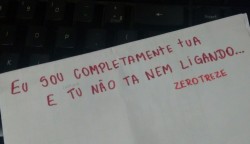 EU SOU COMPLETAMENTE TUA
E TU NÃO TA NEM LIGANDO...
ZEROTREZE